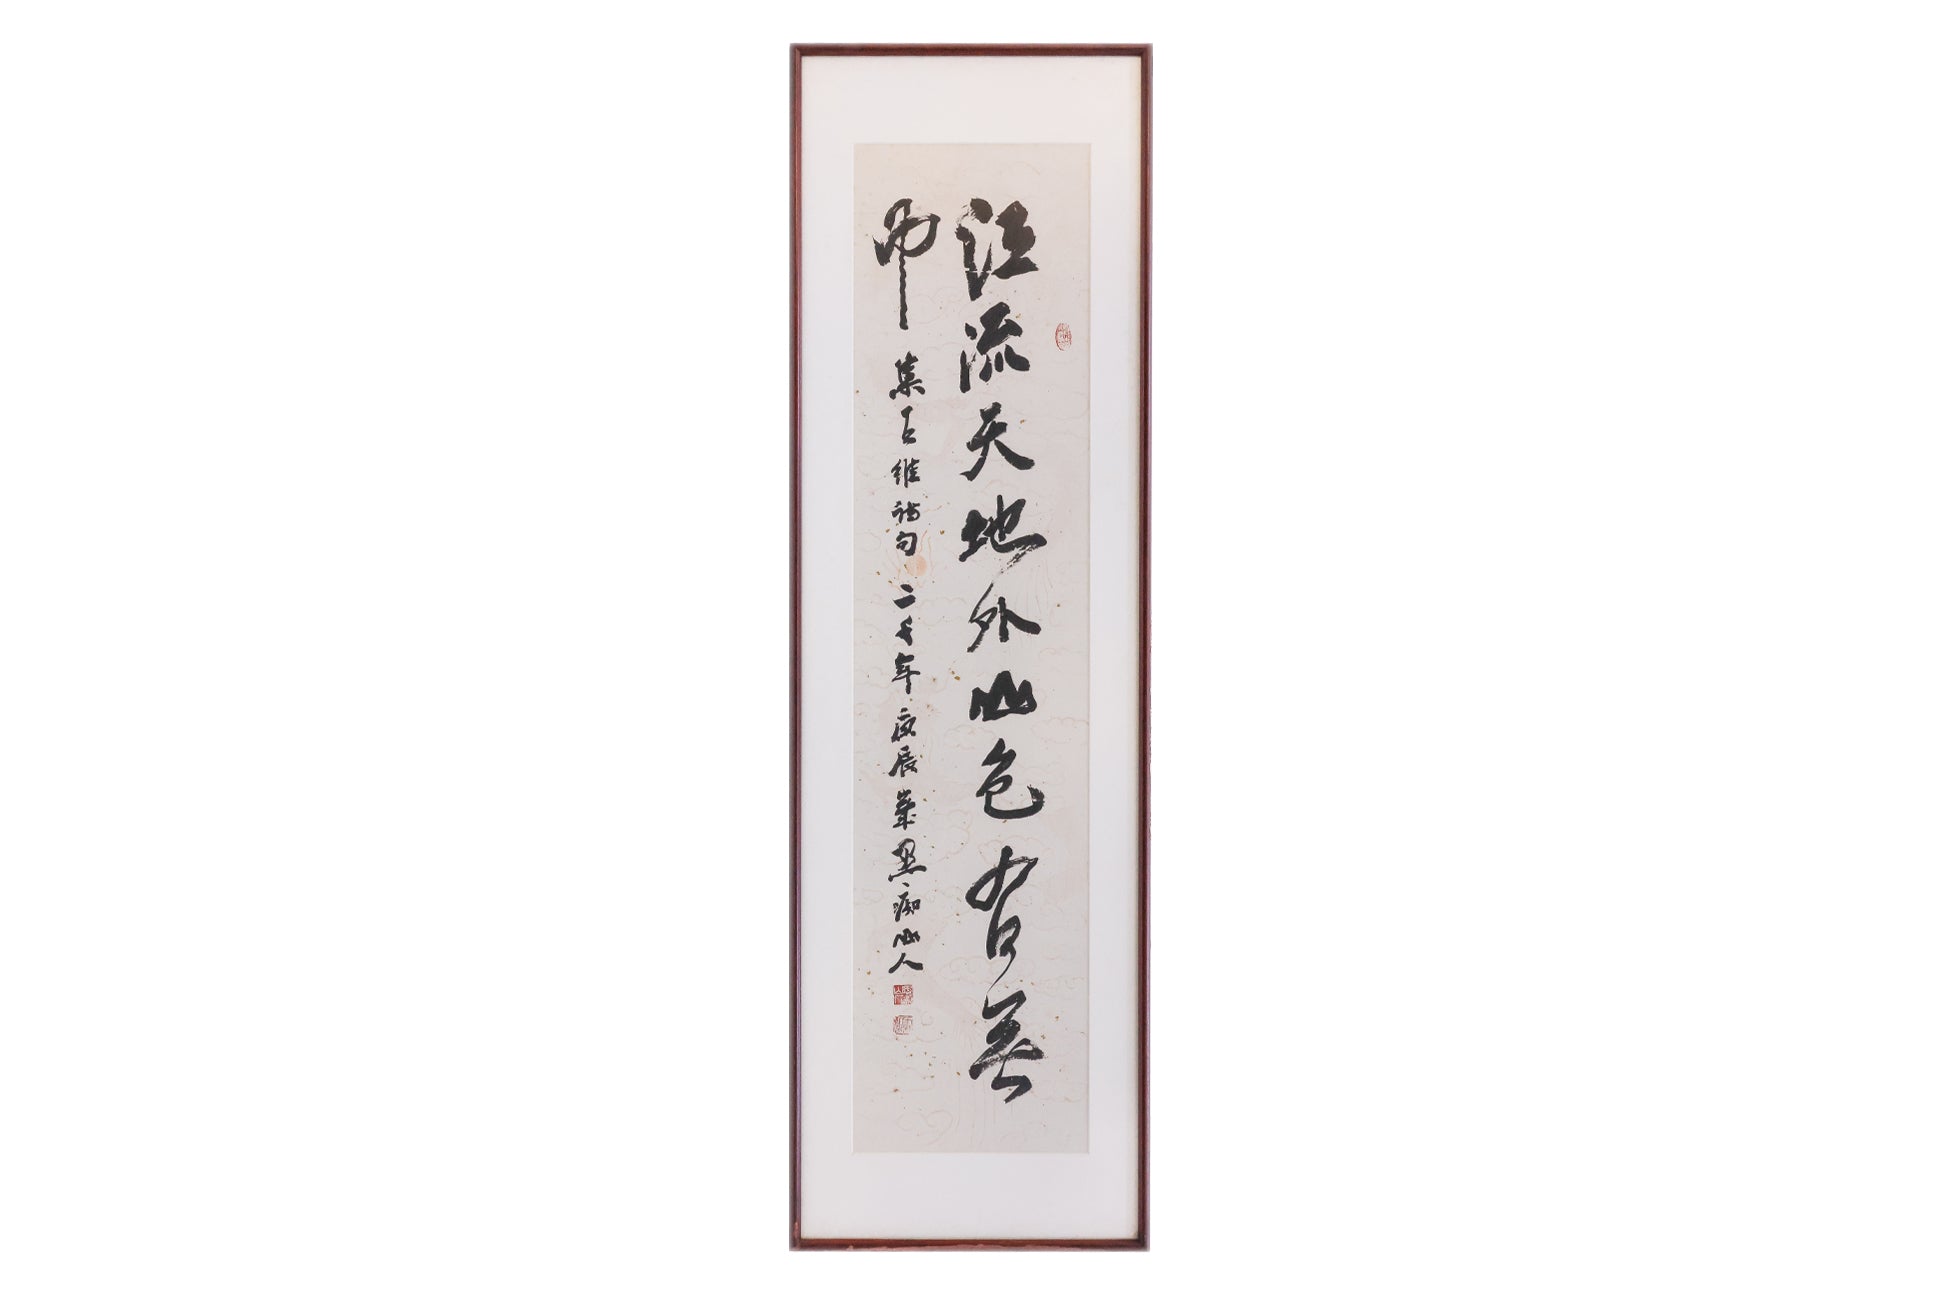 江流天地外山色有無
中
集王維詩句 二千年庚辰歲墨痴山人